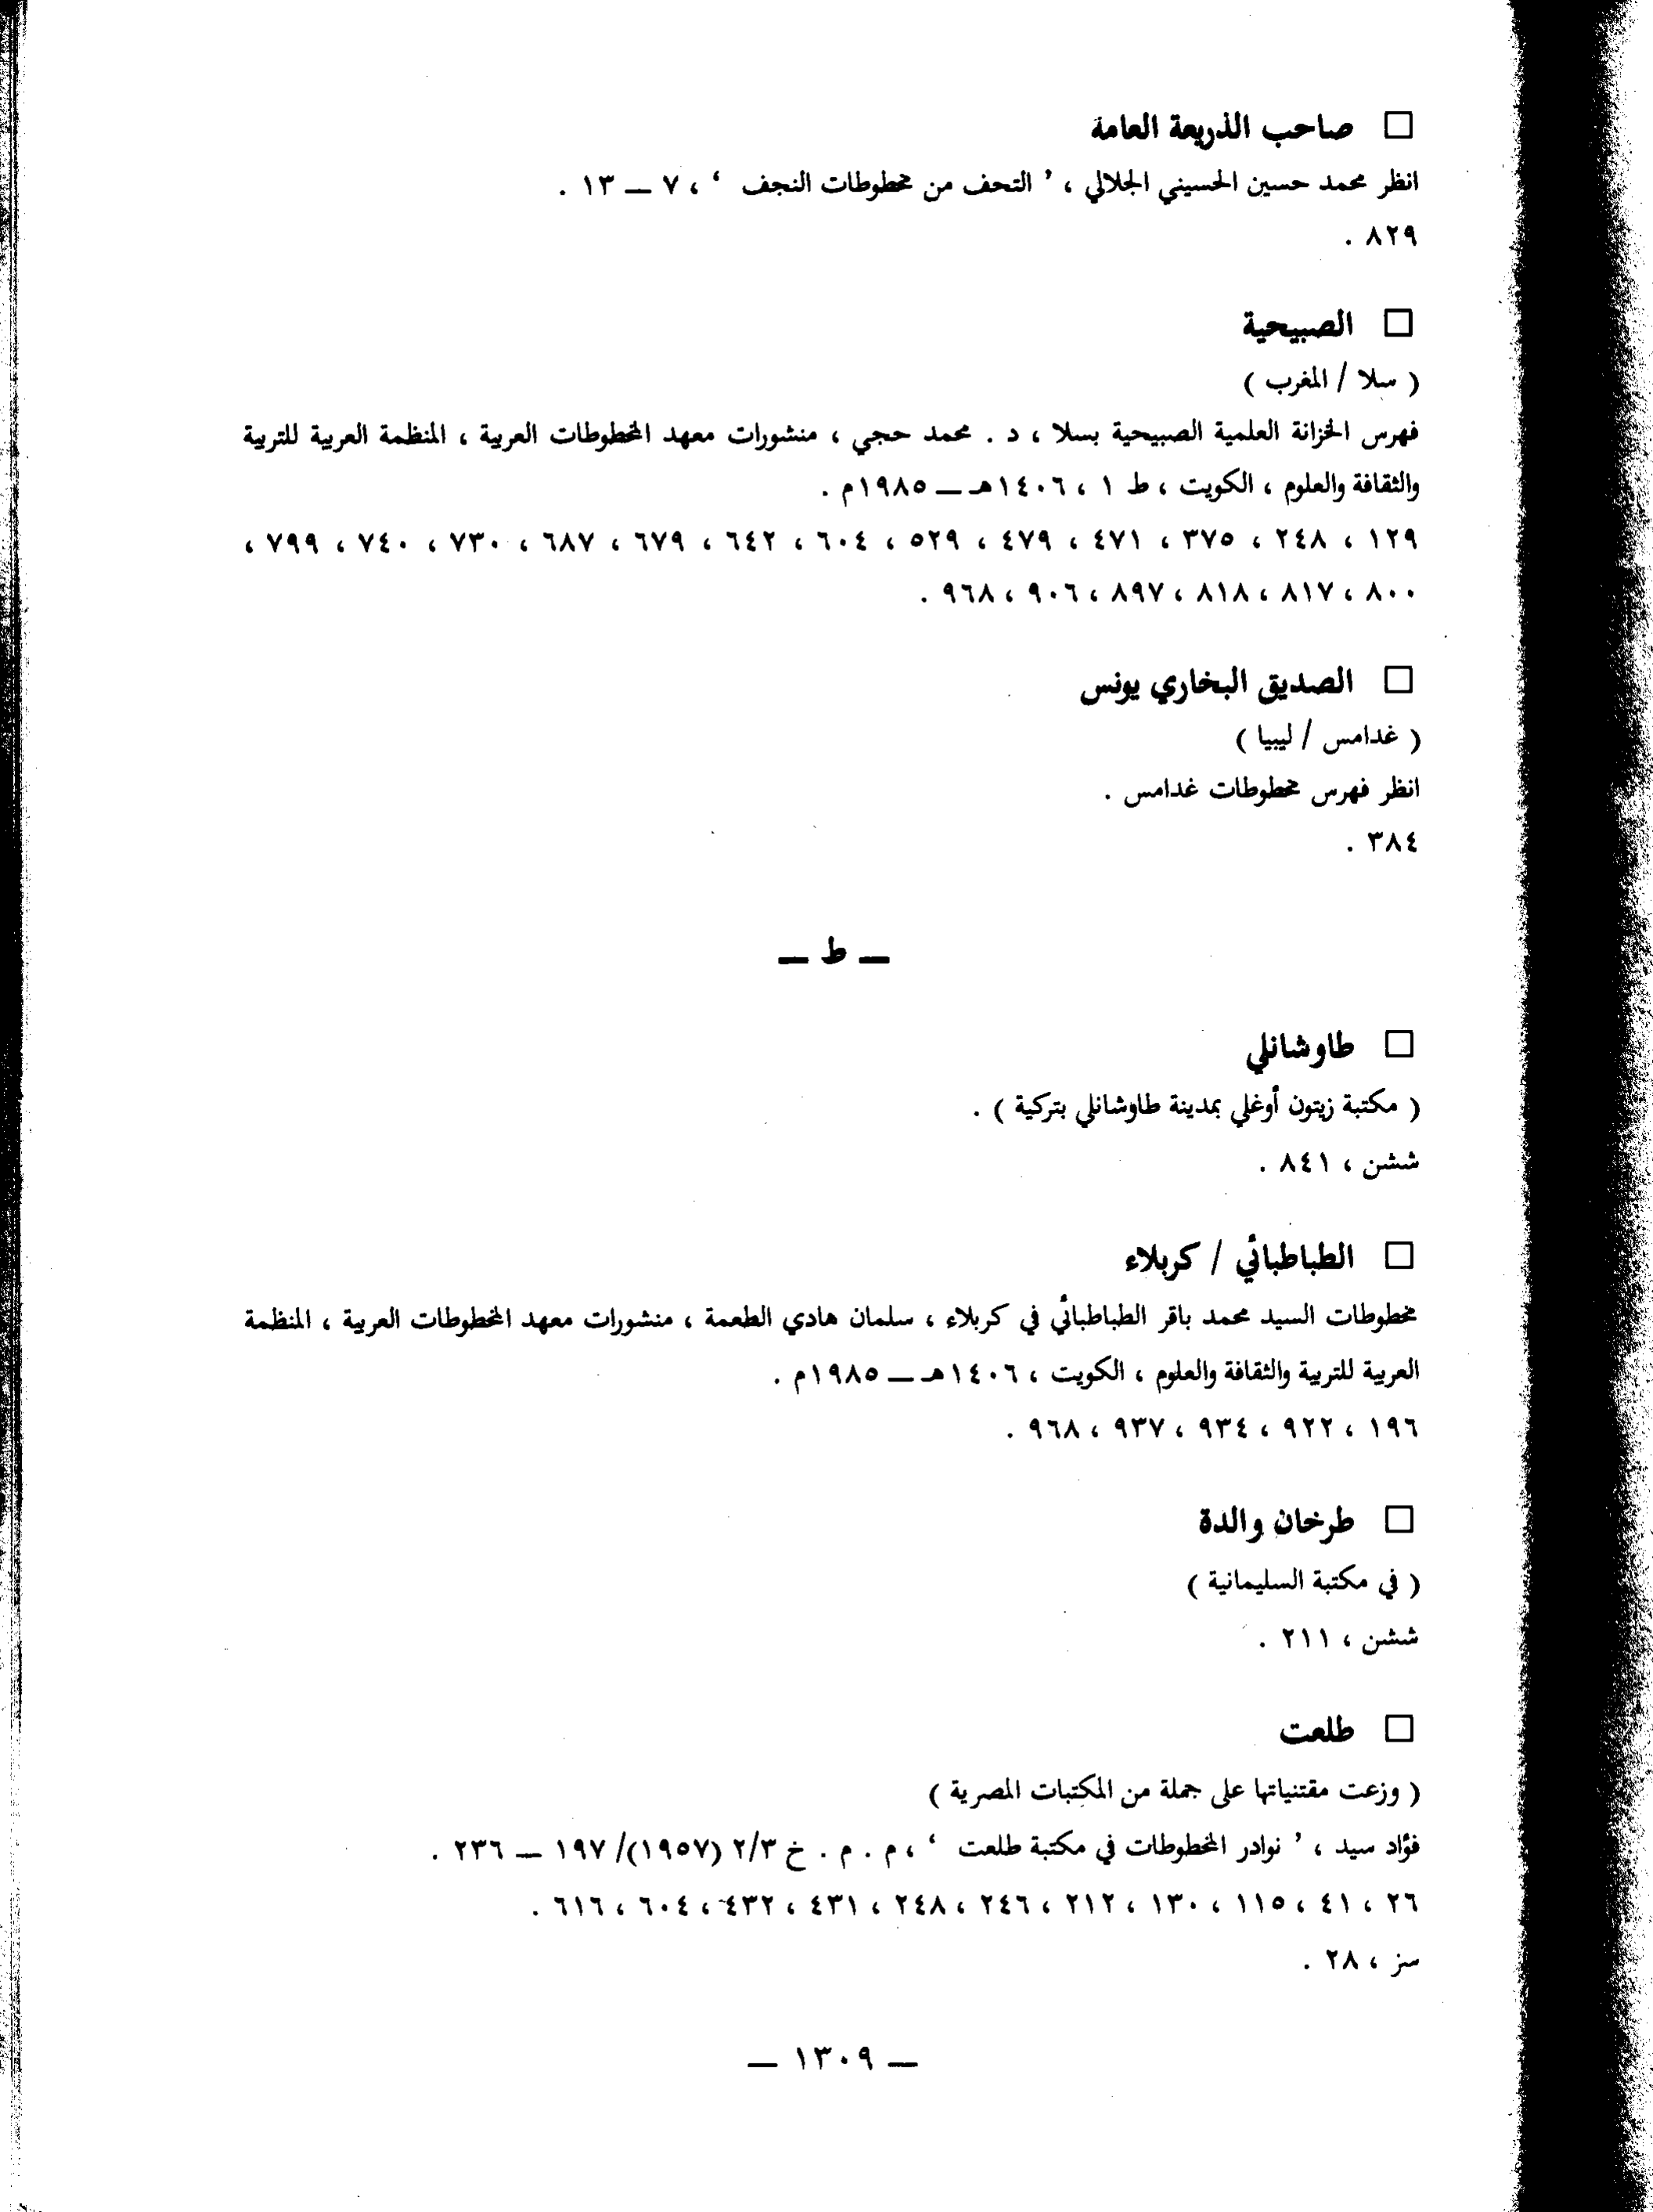 □ صاحب الذريعة العامة
انظر محمد حسين الحسيني الجلالي ، ’ التحف من مخطوطات النجف ‘ ، ٧ — ١٣ .
٨٢٩ .
□ الصبيحية
( سلا / المغرب )
فهرس الخزانة العلمية الصبيحية بسلا ، د . محمد حجي ، منشورات معهد المخطوطات العربية ، المنظمة العربية للتربية
والثقافة والعلوم ، الكويت ، ط ١ ، ١٤٠٦هـ — ١٩٨٥م .
١٢٩ ، ٢٤٨ ، ٣٧٥ ، ٤٧١ ، ٤٧٩ ، ٥٢٩ ، ٦٠٤ ، ٦٤٢ ، ٦٧٩ ، ٦٨٧ ، ٧٣٠ ، ٧٤٠ ، ٧٩٩ ،
٨٠٠ ، ٨١٧ ، ٨١٨ ، ٨٩٧ ، ٩٠٦ ، ٩٦٨ .
□ الصديق البخاري يونس
( غدامس / ليبيا )
انظر فهرس مخطوطات غدامس .
٣٨٤ .
— ط —
□ طاوشانلي
( مكتبة زيتون أوغلي بمدينة طاوشانلي بتركية ) .
ششن ، ٨٤١ .
□ الطباطبائي / كربلاء
مخطوطات السيد محمد باقر الطباطبائي في كربلاء ، سلمان هادي الطعمة ، منشورات معهد المخطوطات العربية ، المنظمة
العربية للتربية والثقافة والعلوم ، الكويت ، ١٤٠٦هـ — ١٩٨٥م .
١٩٦ ، ٩٢٢ ، ٩٣٤ ، ٩٣٧ ، ٩٦٨ .
□ طرخان والدة
( في مكتبة السليمانية )
ششن ، ٢١١ .
□ طلعت
( وزعت مقتنياتها على جملة من المكتبات المصرية )
فؤاد سيد ، ’ نوادر المخطوطات في مكتبة طلعت ‘ ، م . م . خ ٢/٣ (١٩٥٧)/ ١٩٧ — ٢٣٦ .
٢٦ ، ٤١ ، ١١٥ ، ١٣٠ ، ٢١٢ ، ٢٤٦ ، ٢٤٨ ، ٤٣١ ، ٤٣٢ ، ٦٠٤ ، ٦١٦ .
سز ، ٢٨ .
— ١٣٠٩ —